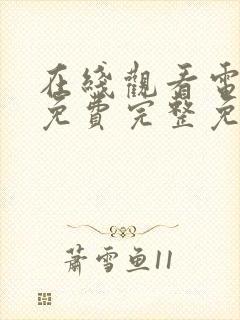 在綫觀看電
免費完整免
蕭雪魚11